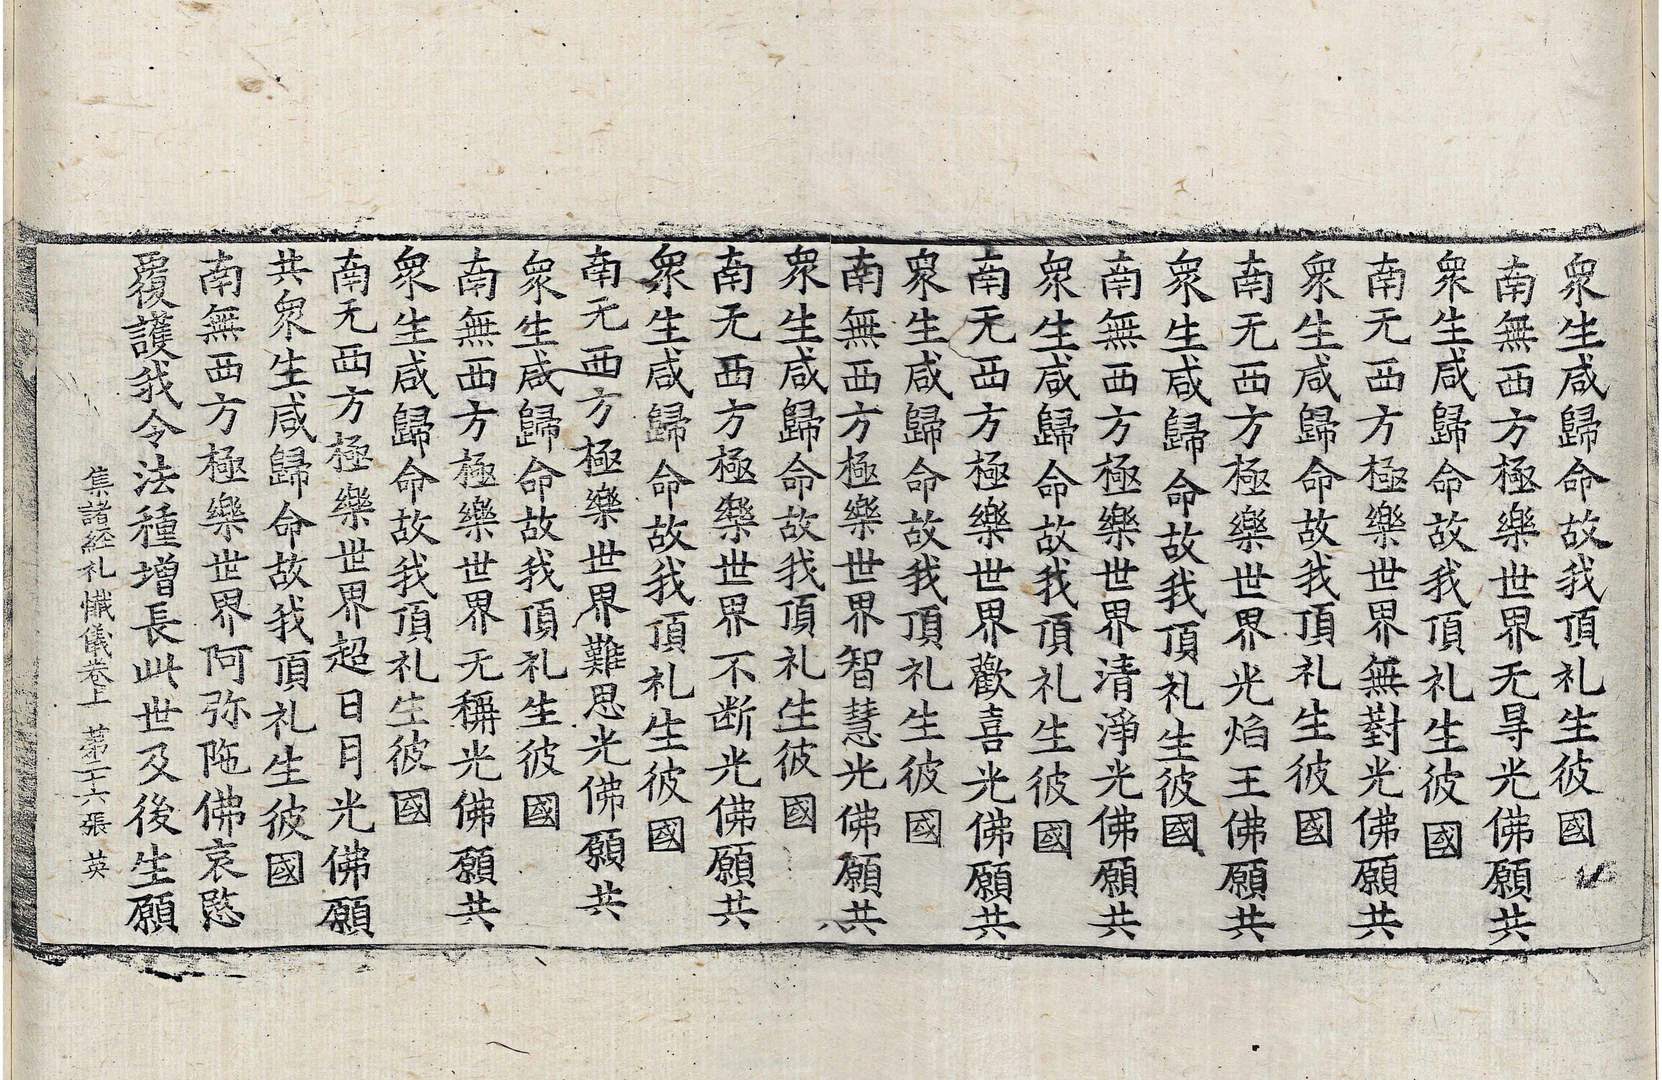 衆生咸歸命故我頂礼生彼國
南無西方極樂世界无㝵光佛願共
衆生咸歸命故我頂礼生彼國
南无西方極樂世界無對光佛願共
衆生咸歸命故我頂礼生彼國
南无西方極樂世界光焰王佛願共
衆生咸歸命故我頂礼生彼國
南無西方極樂世界清淨光佛願共
衆生咸歸命故我頂礼生彼國
南无西方極樂世界歡喜光佛願共
衆生咸歸命故我頂礼生彼國
南無西方極樂世界智慧光佛願共
衆生咸歸命故我頂礼生彼國
南无西方極樂世界不断光佛願共
衆生咸歸命故我頂礼生彼國
南无西方極樂世界難思光佛願共
衆生咸歸命故我頂礼生彼國
南無西方極樂世界无稱光佛願共
衆生咸歸命故我頂礼生彼國
南无西方極樂世界超日月光佛願
共衆生咸歸命故我頂礼生彼國
南無西方極樂世界阿弥陁佛哀愍
覆護我令法種增長此世及後生願
集諸經礼懺儀卷上 第二十六張 英